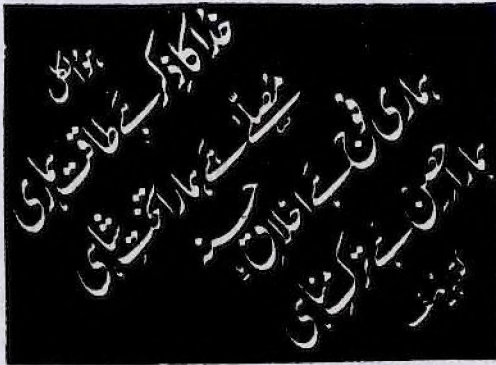 ہوالکل
خدا کا ذکر ہے طاقت ہماری
مصلّے ہے ہمارا تختِ شاہی
ہماری فوج ہے اخلاقِ حسنہ
ہمارا حِصن ہے ترکِ مناہی